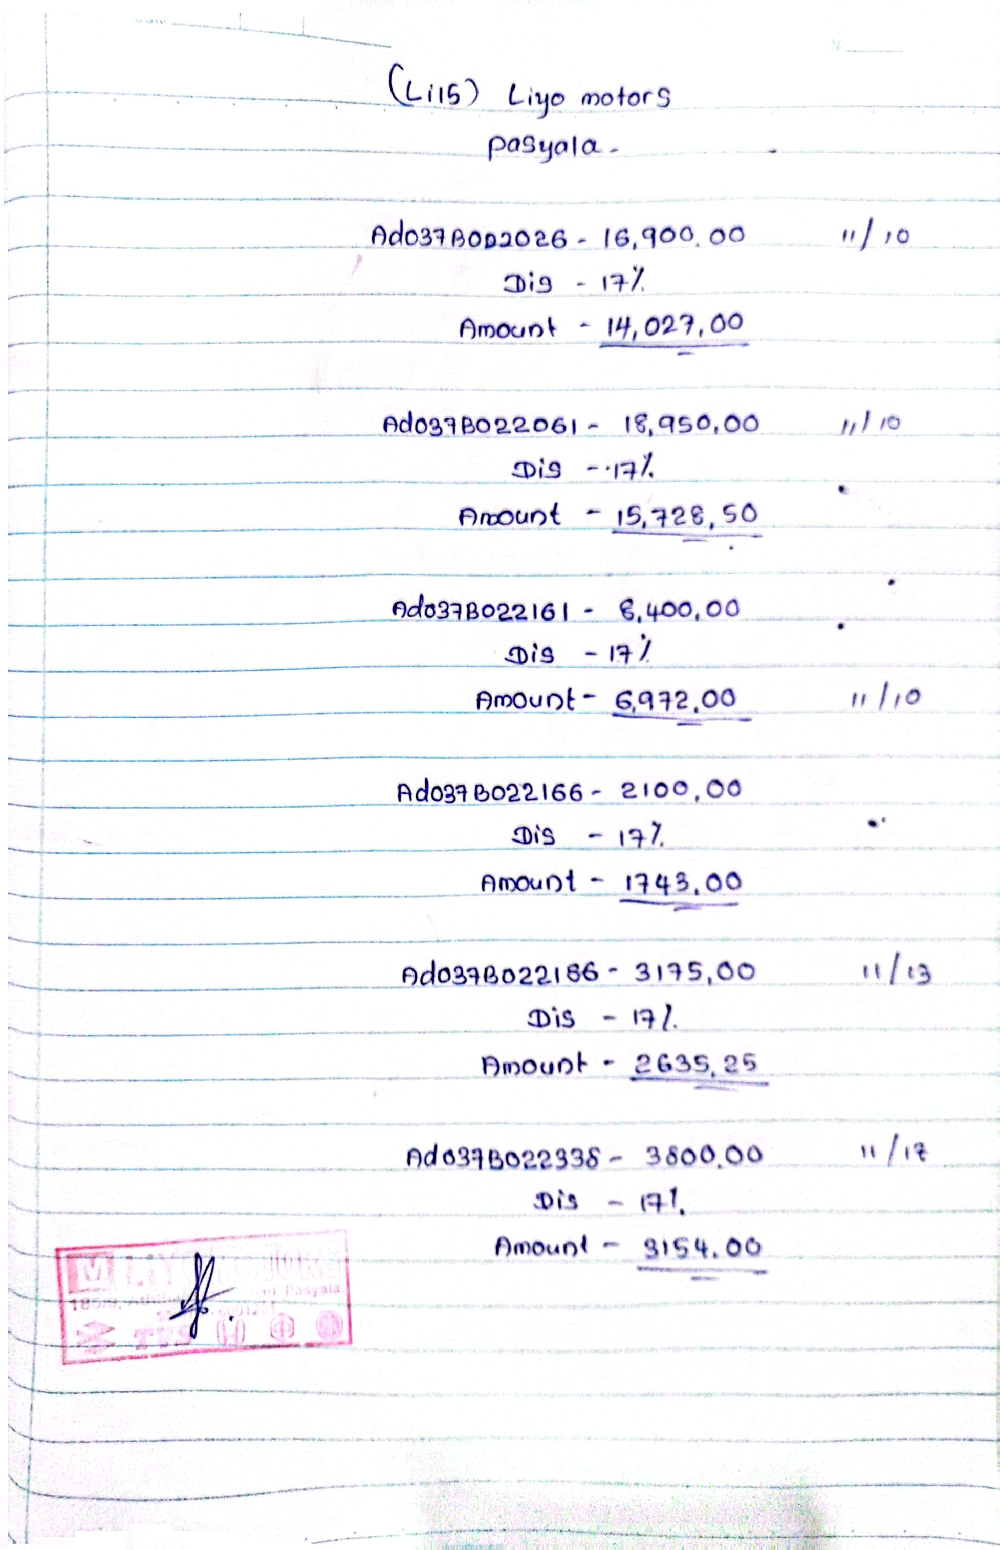 (Li15) Liyo motors
pasyala -
Ad037B022026 - 16,900.00 11/10
Dis - 17%
Amount - 14,027,00
Ad037B022061 - 18,950,00 11/10
Dis - 17%
Amount - 15,728,50
Ad037B022161 - 8,400,00
Dis - 17%
Amount - 6,972,00 11/10
Ad037B022166 - 2100,00
Dis - 17%
Amount - 1743,00
Ad037B022186 - 3175,00 11/13
Dis - 17%
Amount - 2635,25
Ad037B022338 - 3800.00 11/17
Dis - 17%
Amount - 3154.00
Pasyala
TVS